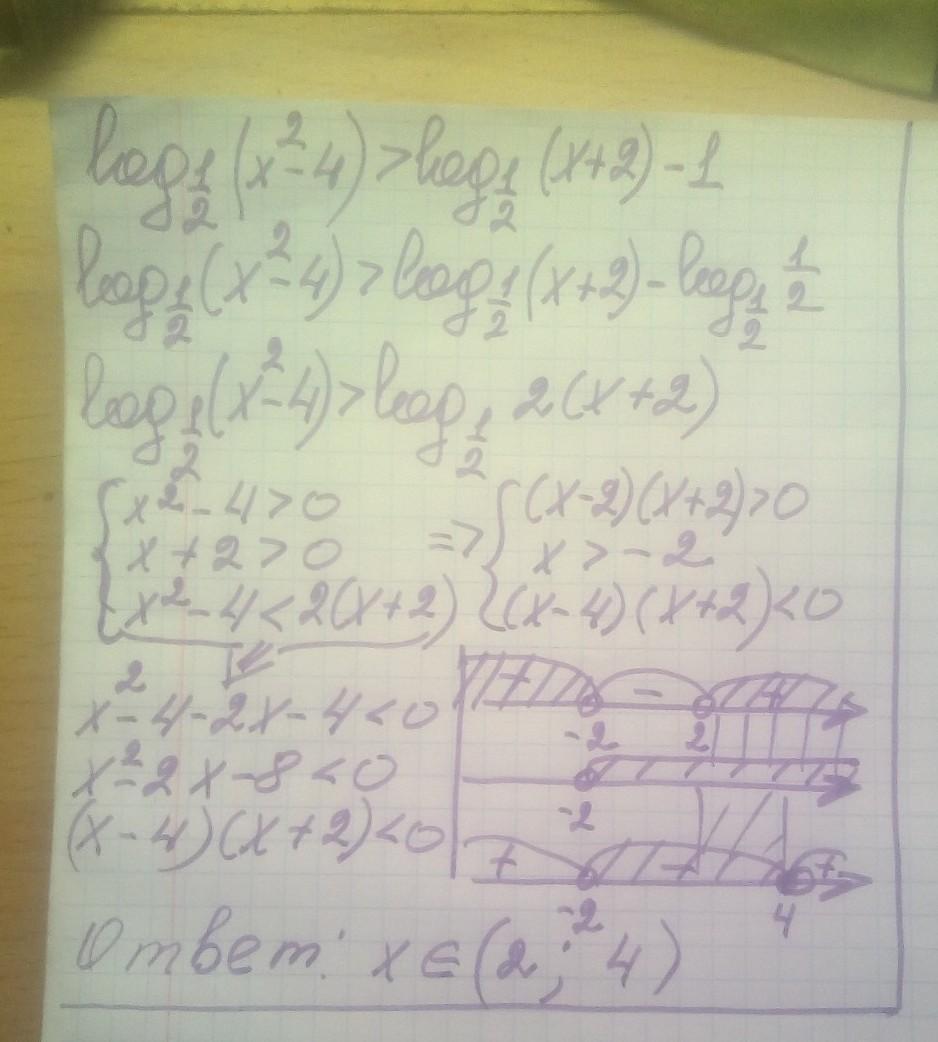 log_{1/2}(x²-4)>log_{1/2}(x+2)-1
log_{1/2}(x²-4)>log_{1/2}(x+2)-log_{1/2} 1/2
log_{1/2}(x²-4)>log_{1/2} 2(x+2)
{x²-4>0 => {(x-2)(x+2)>0
x+2>0 x>-2
x²-4<2(x+2) (x-4)(x+2)<0
x²-4-2x-4<0
x²-2x-8<0
(x-4)(x+2)<0
+ - +
-2 2
-2
+ - +
-2 4
Ответ: x∈(2; 4)